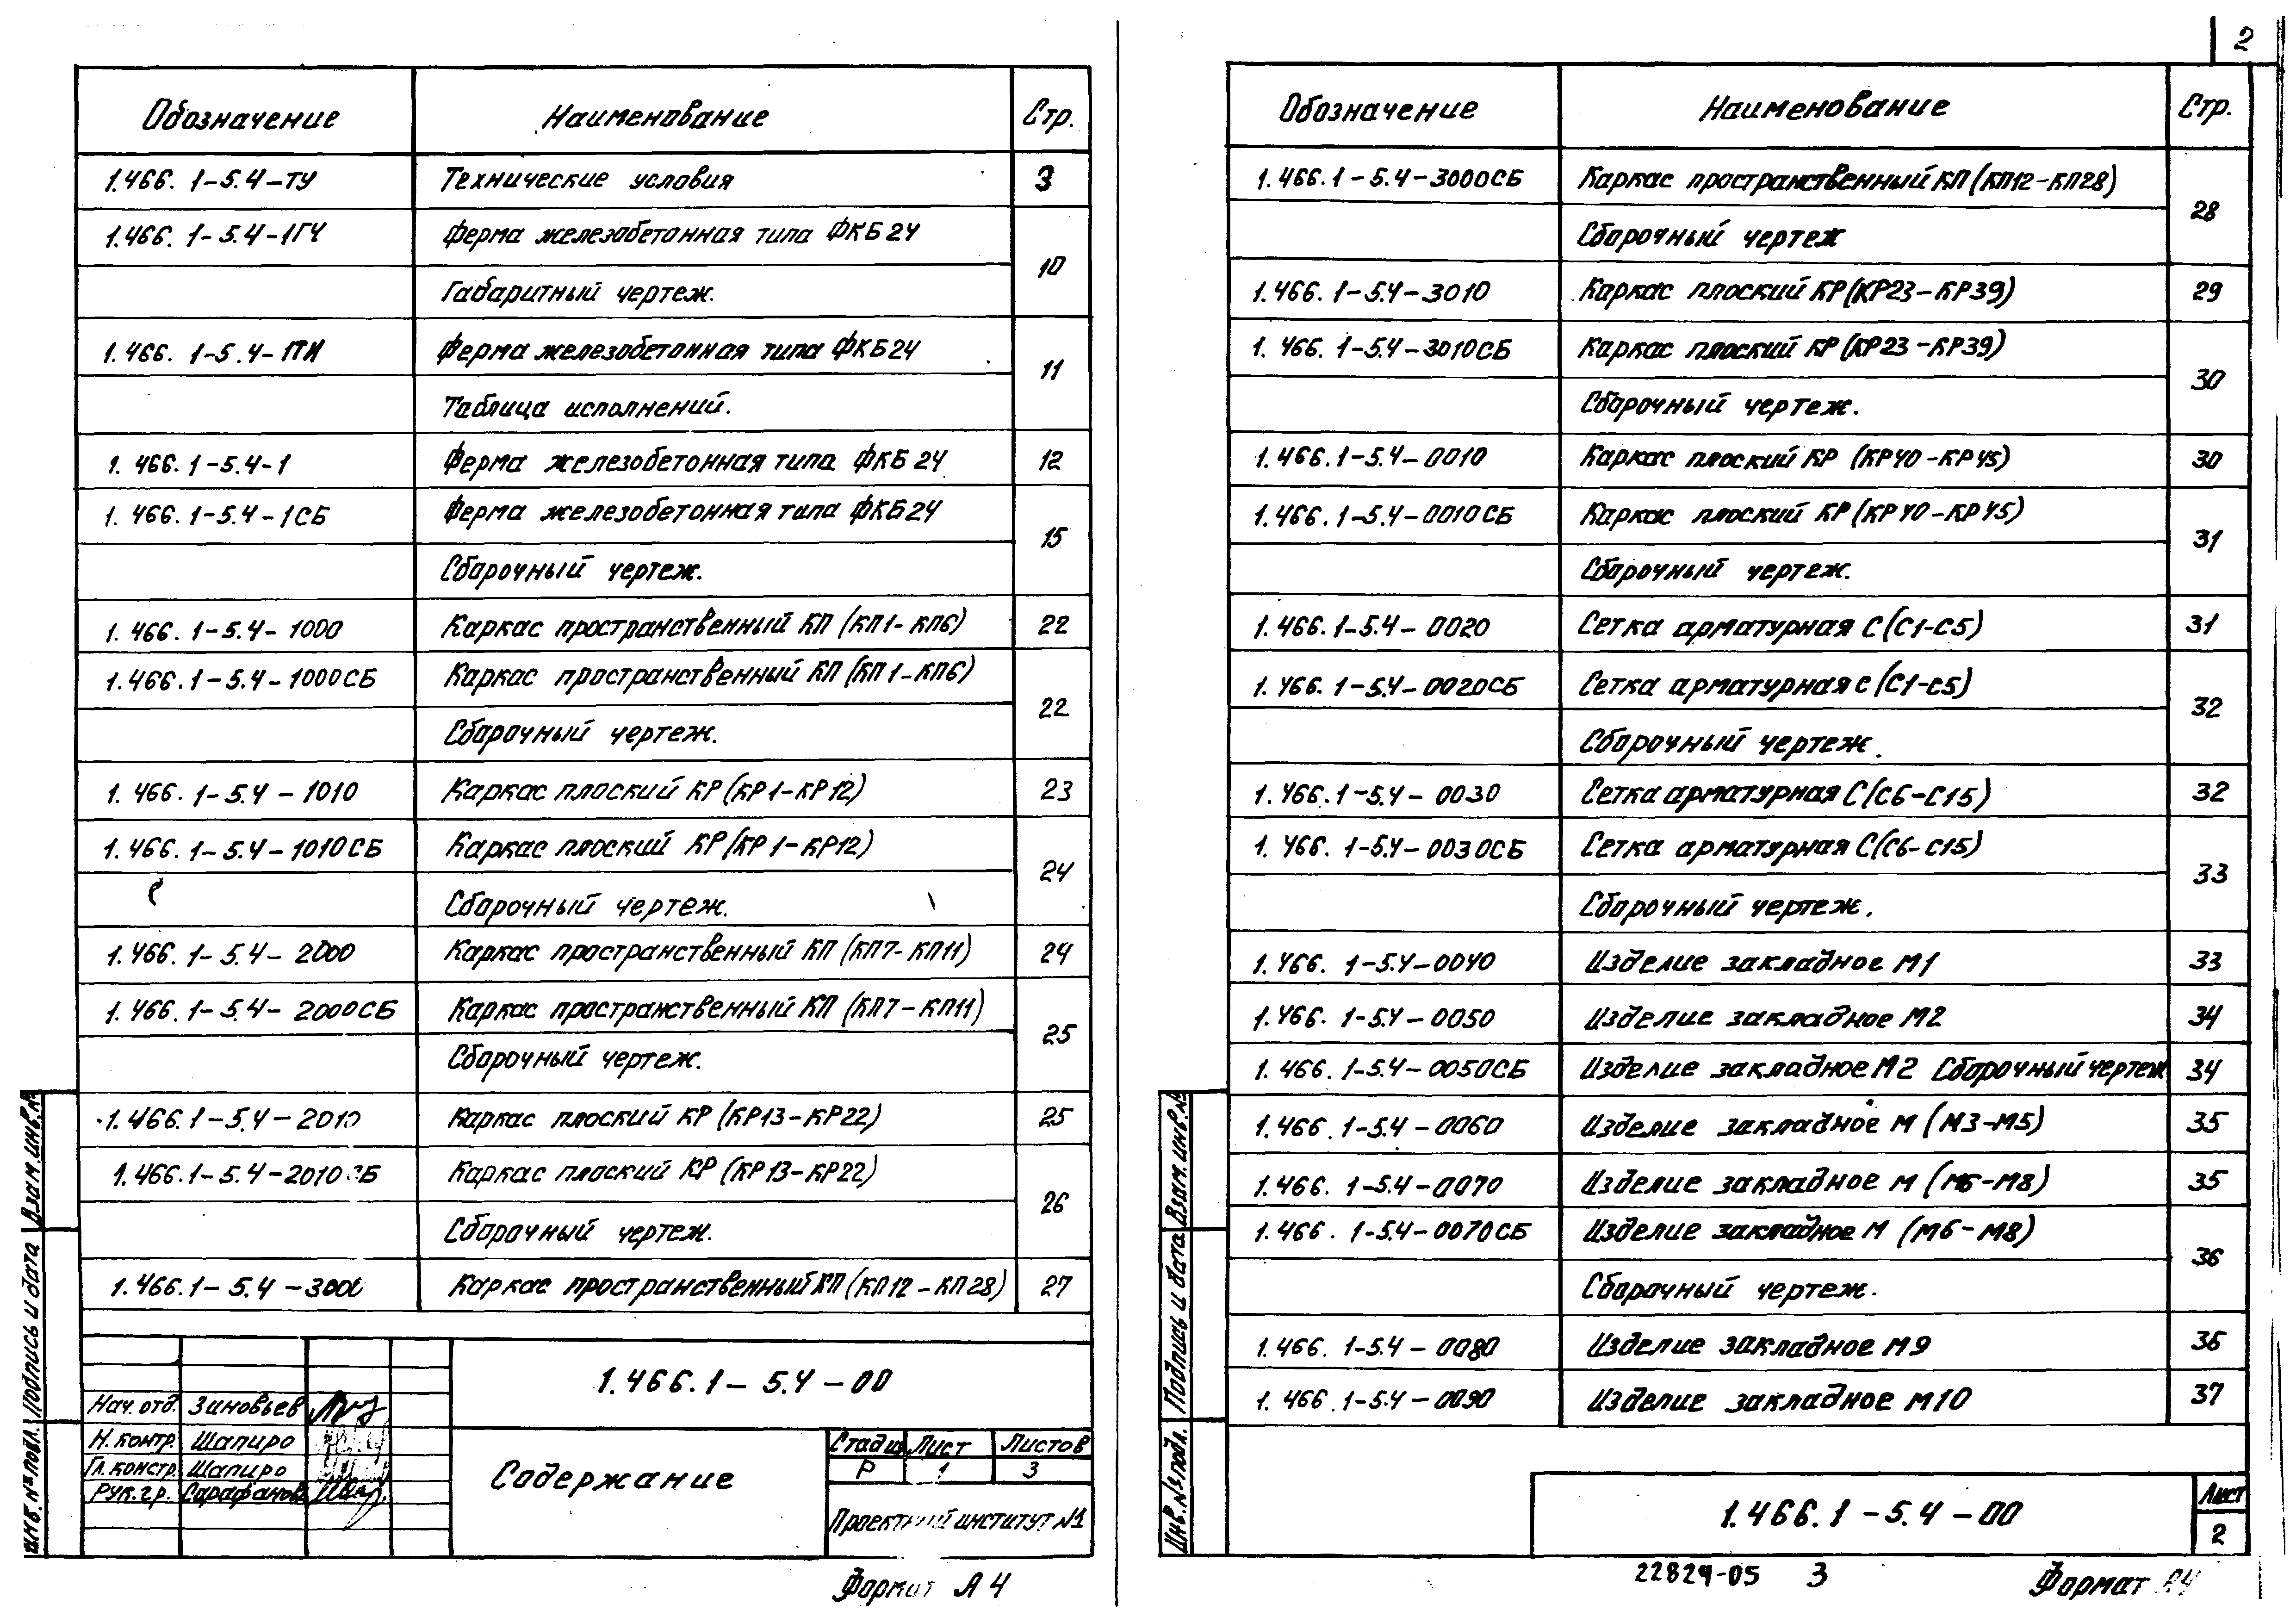 Обозначение Наименование Стр.
1.466.1-5.4-ТУ Технические условия 3
1.466.1-5.4-1ГЧ Ферма железобетонная типа ФКБ24 10
Габаритный чертеж.
1.466.1-5.4-1ТИ Ферма железобетонная типа ФКБ24 11
Таблица исполнений.
1.466.1-5.4-1 Ферма железобетонная типа ФКБ24 12
1.466.1-5.4-1СБ Ферма железобетонная типа ФКБ24 15
Сборочный чертеж.
1.466.1-5.4-1000 Каркас пространственный КП (КП1-КП6) 22
1.466.1-5.4-1000СБ Каркас пространственный КП (КП1-КП6) 22
Сборочный чертеж.
1.466.1-5.4-1010 Каркас плоский КР (КР1-КР12) 23
1.466.1-5.4-1010СБ Каркас плоский КР (КР1-КР12) 24
Сборочный чертеж.
1.466.1-5.4-2000 Каркас пространственный КП (КП7-КП11) 24
1.466.1-5.4-2000СБ Каркас пространственный КП (КП7-КП11) 25
Сборочный чертеж.
1.466.1-5.4-2010 Каркас плоский КР (КР13-КР22) 25
1.466.1-5.4-2010СБ Каркас плоский КР (КР13-КР22) 26
Сборочный чертеж.
1.466.1-5.4-3000 Каркас пространственный КП (КП12-КП28) 27
1.466.1-5.4-00
Нач. отд. Зиновьев
Н. контр. Шапиро
Гл. констр. Шапиро
Рук. гр. Сарафанов
Содержание
Стадия Лист Листов
Р 1 3
Проектный институт №1
Взам. инв. №
Подпись и дата
Инв. № подл.
Формат А4
2
Обозначение Наименование Стр.
1.466.1-5.4-3000СБ Каркас пространственный КП (КП12-КП28) 28
Сборочный чертеж
1.466.1-5.4-3010 Каркас плоский КР (КР23-КР39) 29
1.466.1-5.4-3010СБ Каркас плоский КР (КР23-КР39) 30
Сборочный чертеж.
1.466.1-5.4-0010 Каркас плоский КР (КР40-КР45) 30
1.466.1-5.4-0010СБ Каркас плоский КР (КР40-КР45) 31
Сборочный чертеж.
1.466.1-5.4-0020 Сетка арматурная С (С1-С5) 31
1.466.1-5.4-0020СБ Сетка арматурная С (С1-С5) 32
Сборочный чертеж.
1.466.1-5.4-0030 Сетка арматурная С (С6-С15) 32
1.466.1-5.4-0030СБ Сетка арматурная С (С6-С15) 33
Сборочный чертеж.
1.466.1-5.4-0040 Изделие закладное М1 33
1.466.1-5.4-0050 Изделие закладное М2 34
1.466.1-5.4-0050СБ Изделие закладное М2 Сборочный чертеж 34
1.466.1-5.4-0060 Изделие закладное М (М3-М5) 35
1.466.1-5.4-0070 Изделие закладное М (М6-М8) 35
1.466.1-5.4-0070СБ Изделие закладное М (М6-М8) 36
Сборочный чертеж.
1.466.1-5.4-0080 Изделие закладное М9 36
1.466.1-5.4-0090 Изделие закладное М10 37
1.466.1-5.4-00
Лист
2
Взам. инв. №
Подпись и дата
Инв. № подл.
22824-05 3
Формат А4